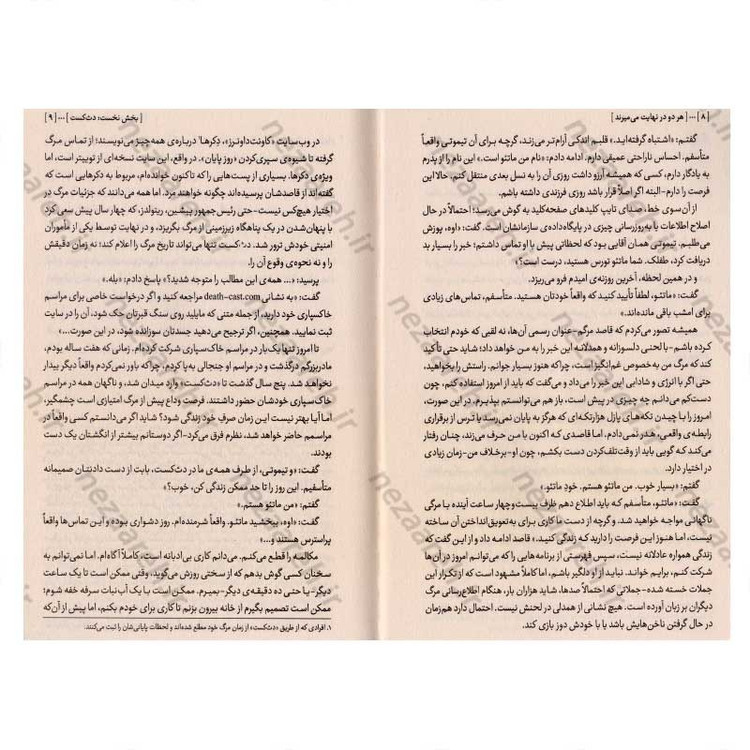 [۸] ... [هر دو در نهایت می‌میرند]
گفتم: «اشتباه گرفته‌اید.» قلبم اندکی آرام‌تر می‌زند، گرچه برای آن تیموتی واقعاً
متأسفم. احساس ناراحتی عمیقی دارم. ادامه دادم: «نام من ماتئو است.» این نام را از پدرم
به یادگار دارم، کسی که همیشه آرزو داشت روزی آن را به نسل بعدی منتقل کنم. حالا این
فرصت را دارم-البته اگر اصلاً قرار باشد روزی فرزندی داشته باشم.
از آن سوی خط، صدای تایپ کلیدهای صفحه‌کلید به گوش می‌رسد؛ احتمالاً در حال
اصلاح اطلاعات یا به‌روزرسانی چیزی در پایگاه‌داده‌ی سازمانشان است. گفت: «اوه، پوزش
می‌طلبم. تیموتی همان آقایی بود که لحظاتی پیش با او تماس داشتم؛ خبر را بسیار بد
دریافت کرد، طفلک. شما ماتئو تورس هستید، درست است؟»
و در همین لحظه، آخرین روزنه‌ی امیدم فرو می‌ریزد.
گفت: «ماتئو، لطفاً تأیید کنید که واقعاً خودتان هستید. متأسفم، تماس‌های زیادی
برای امشب باقی مانده‌اند.»
همیشه تصور می‌کردم که قاصد مرگ-عنوان رسمی آن‌ها، نه لقبی که خودم انتخاب
کرده باشم-با لحنی دلسوزانه و همدلانه این خبر را به من خواهد داد؛ شاید حتی تأکید
کند که مرگ من به خصوص غم‌انگیز است، چراکه هنوز بسیار جوانم. راستش را بخواهید،
حتی اگر با انرژی و شادابی این خبر را می‌داد و می‌گفت که باید از امروز استفاده کنم، چون
دست‌کم می‌دانم چه چیزی در پیش است، باز هم می‌توانستم بپذیرم. در این صورت،
امروز را با چیدن تکه‌های پازل هزارتکه‌ای که هرگز به پایان نمی‌رسد یا ترس از برقراری
رابطه‌ی واقعی، هدر نمی‌دادم. اما قاصدی که اکنون با من حرف می‌زند، چنان رفتار
می‌کند که گویی باید از وقت‌تلف‌کردن دست بکشم، چون او-برخلاف من-زمان زیادی
در اختیار دارد.
گفتم: «بسیار خوب. من ماتئو هستم. خودِ ماتئو.»
گفت: «ماتئو، متأسفم که باید اطلاع دهم ظرف بیست‌وچهار ساعت آینده با مرگی
ناگهانی مواجه خواهید شد. و گرچه از دست ما کاری برای به‌تعویق‌انداختن آن ساخته
نیست، اما هنوز این فرصت را دارید که زندگی کنید.» قاصد ادامه داد و از این گفت که
زندگی همواره عادلانه نیست، سپس فهرستی از برنامه‌هایی را که می‌توانم امروز در آن‌ها
شرکت کنم، برایم خواند. نباید از او دلگیر باشم، اما کاملاً مشهود است که از تکرار این
جملات خسته شده-جملاتی که احتمالاً صدها، شاید هزاران بار، هنگام اطلاع‌رسانی مرگ
دیگران بر زبان آورده است. هیچ نشانی از همدلی در لحنش نیست. احتمال دارد هم‌زمان
در حال گرفتن ناخن‌هایش باشد یا با خودش دوز بازی کند.
[بخش نخست: دث‌کست] ... [۹]
در وب‌سایت «کاونت‌داونرز»، دِکِرها۱ درباره‌ی همه‌چیز می‌نویسند؛ از تماس مرگ
گرفته تا شیوه‌ی سپری‌کردن «روز پایان». در واقع، این سایت نسخه‌ای از توییتر است، اما
ویژه‌ی دِکِرها. بسیاری از پست‌هایی را که تاکنون خوانده‌ام، مربوط به دکرهایی است که
گفته‌اند از قاصدشان پرسیده‌اند چگونه خواهند مرد. اما همه می‌دانند که جزئیات مرگ در
اختیار هیچ‌کس نیست-حتی رئیس جمهور پیشین، رینولدز، که چهار سال پیش سعی کرد
با پنهان‌شدن در یک پناهگاه زیرزمینی از مرگ بگریزد، و در نهایت توسط یکی از مأموران
امنیتی خودش ترور شد. دث‌کست تنها می‌تواند تاریخ مرگ را اعلام کند؛ نه زمان دقیقش
را و نه نحوه‌ی وقوع آن را.
پرسید: «... همه‌ی این مطالب را متوجه شدید؟» پاسخ دادم: «بله.»
گفت: «به نشانی death-cast.com مراجعه کنید و اگر درخواست خاصی برای مراسم
خاک‌سپاری خود دارید، از جمله متنی که مایلید روی سنگ قبرتان حک شود، آن را در سایت
ثبت نمایید. همچنین، اگر ترجیح می‌دهید جسدتان سوزانده شود، در این صورت...»
تا امروز تنها یک‌بار در مراسم خاک‌سپاری شرکت کرده‌ام. زمانی که هفت ساله بودم،
مادربزرگم درگذشت و در مراسم او جنجالی به‌پا کردم، چراکه باور نمی‌کردم واقعاً دیگر بیدار
نخواهد شد. پنج سال گذشت تا «دث‌کست» وارد میدان شد، و ناگهان همه در مراسم
خاک‌سپاری خودشان حضور داشتند. فرصت وداع پیش از مرگ امتیازی است چشمگیر،
اما آیا بهتر نیست این زمان صرف خود زندگی شود؟ شاید اگر می‌دانستم کسی واقعاً در
مراسمم حاضر خواهد شد، نظرم فرق می‌کرد-اگر دوستانم بیشتر از انگشتان یک دست
بودند.
گفت: «و تیموتی، از طرف همه‌ی ما در دث‌کست، بابت از دست دادنتان صمیمانه
متأسفیم. این روز را تا حد ممکن زندگی کن، خوب؟»
گفتم: «من ماتئو هستم.»
گفت: «اوه، ببخشید ماتئو. واقعاً شرمنده‌ام. روز دشواری بوده و این تماس‌ها واقعاً
پراسترس هستند و...»
مکالمه را قطع می‌کنم. می‌دانم کاری بی‌ادبانه است، کاملاً آگاه‌ام. اما نمی‌توانم به
سخنان کسی گوش بدهم که از سختی روزش می‌گوید، وقتی ممکن است تا یک ساعت
دیگر-یا حتی ده دقیقه‌ی دیگر-بمیرم. ممکن است با یک آب‌نبات سرفه خفه شوم؛
ممکن است تصمیم بگیرم از خانه بیرون بزنم تا کاری برای خودم بکنم، اما پیش از آن‌که
۱. افرادی که از طریق «دث‌کست» از زمان مرگ خود مطلع شده‌اند و لحظات پایانی‌شان را ثبت می‌کنند.
nezaareh.ir